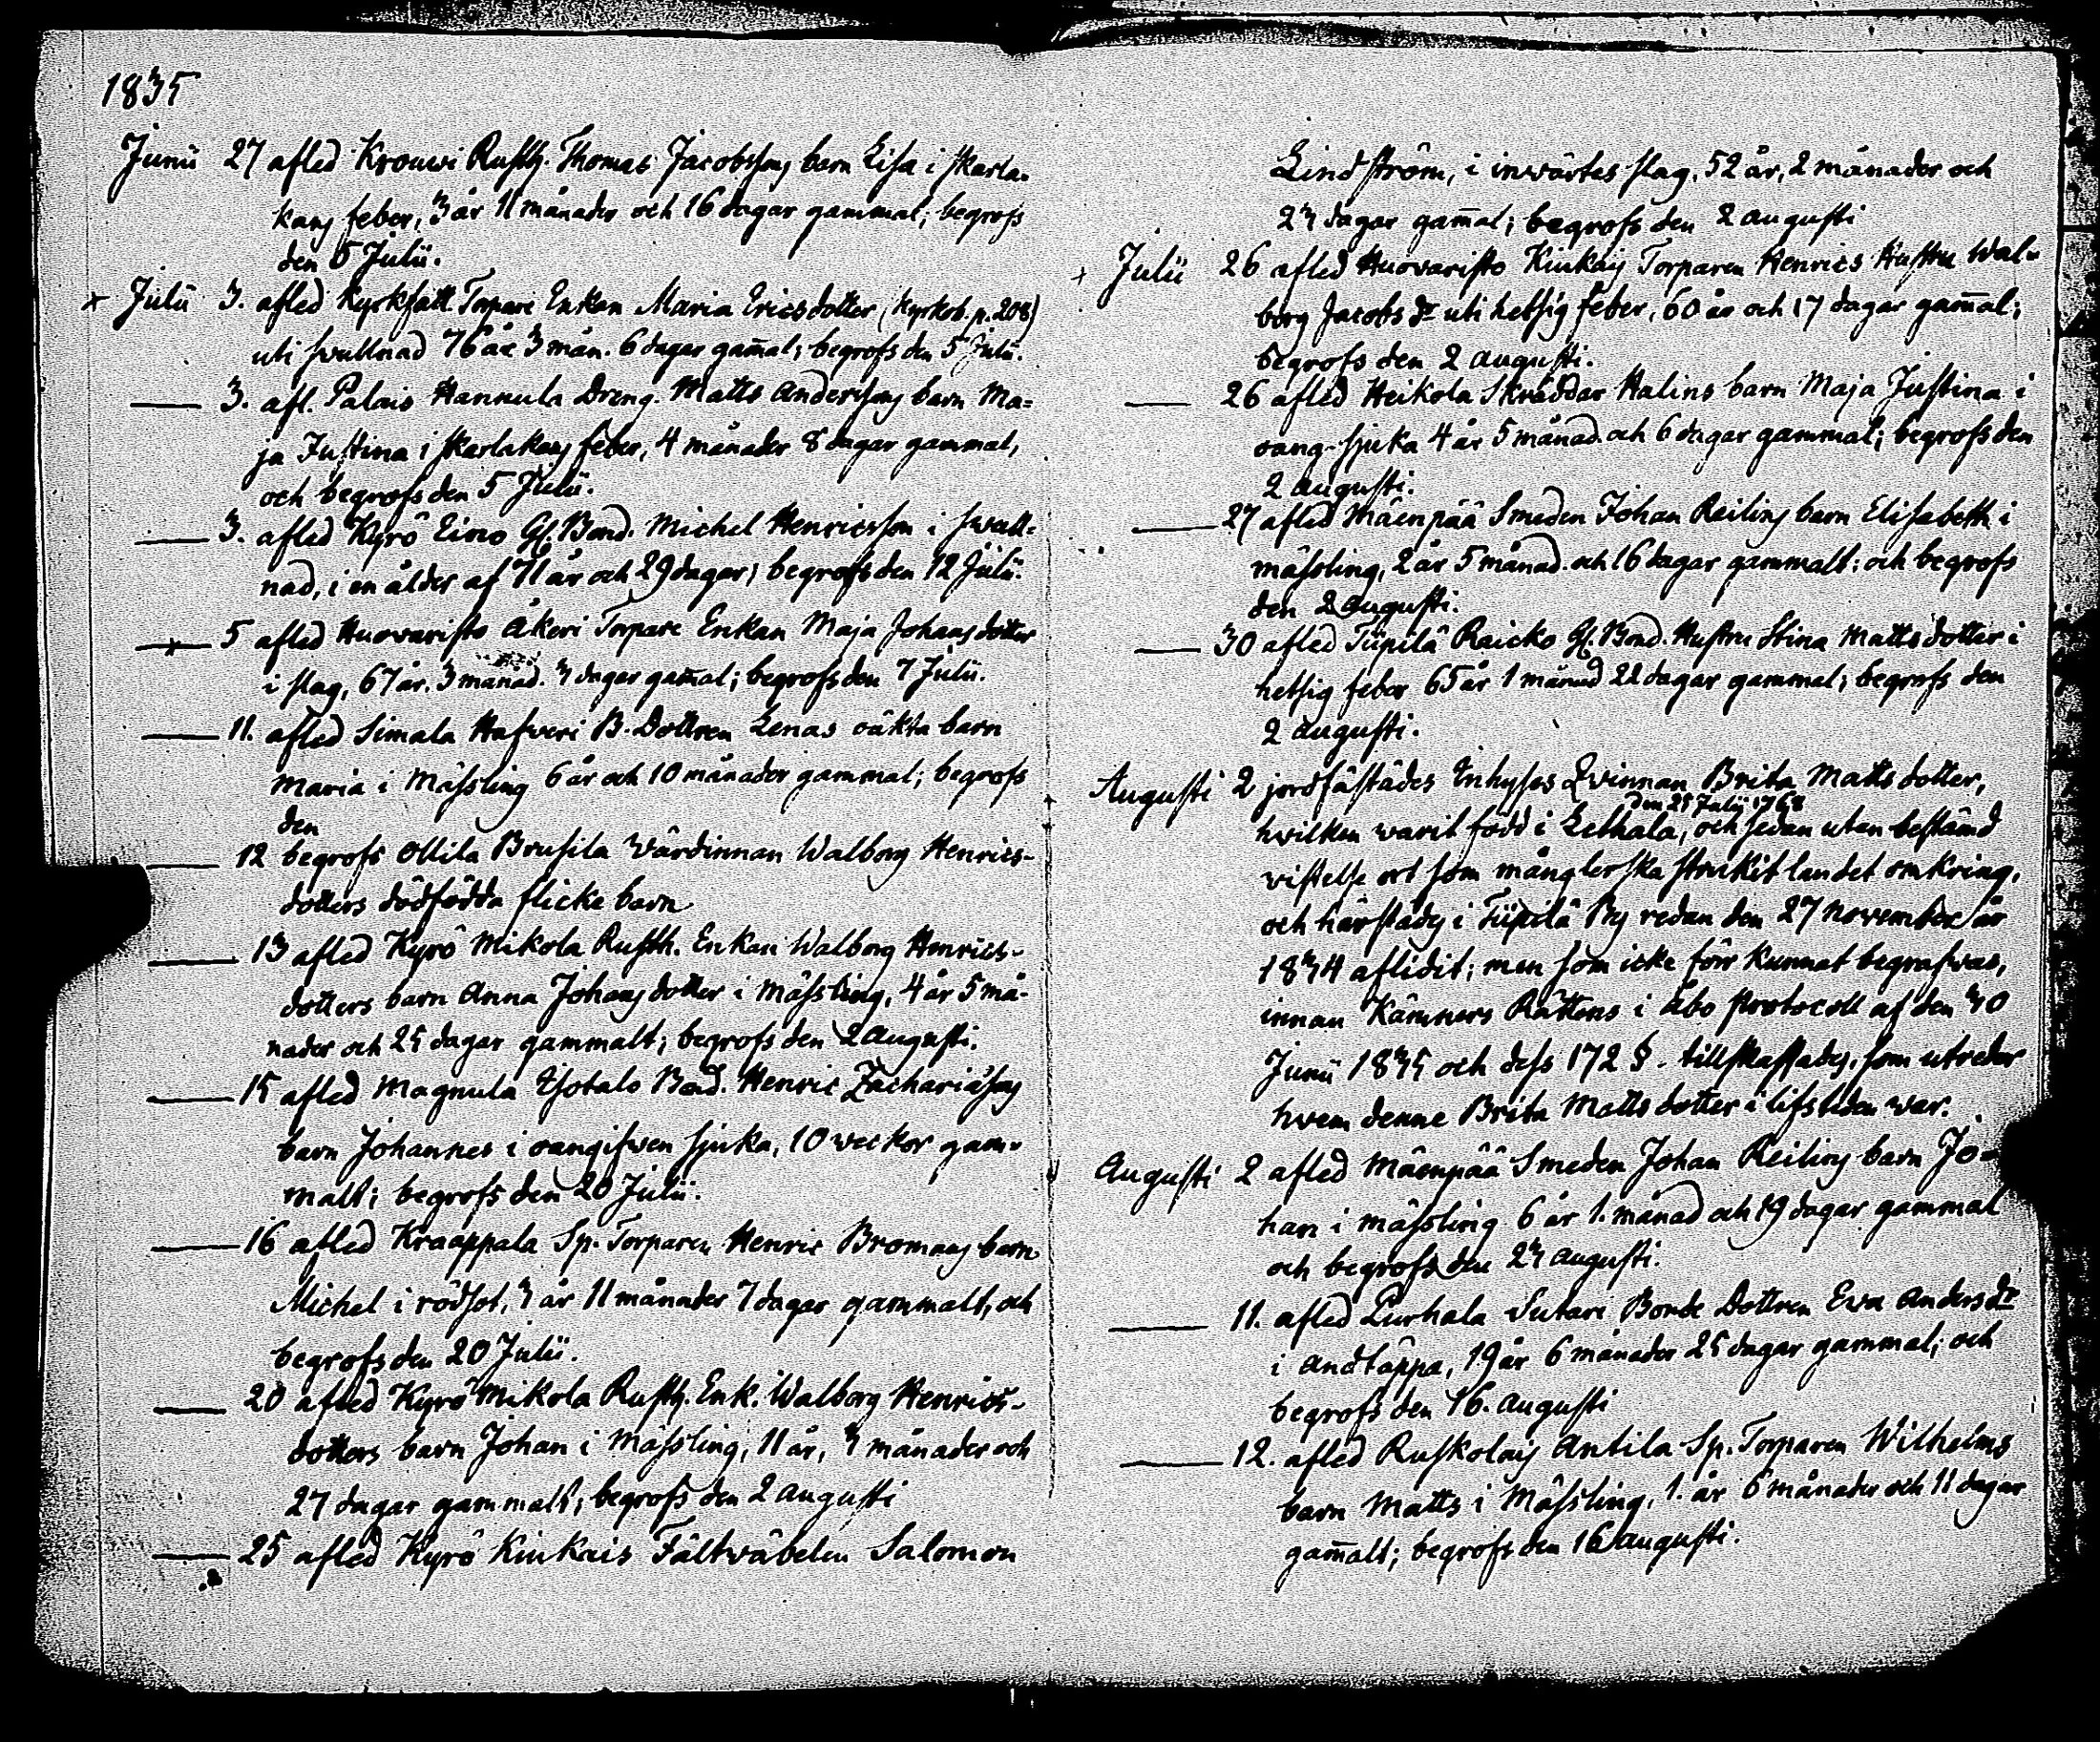 1835
Junii 27 afled Krouwi Rusth. Thomas Jacobssons barn Lisa i skarla-
kans feber, 3 år 11 månader och 16 dagar gammal; begrofs
den 5 Julii.
Julii 3. afled Kyrkfatt. Torpare Enkan Maria Ericsdotter (kyrkob. p. 208)
uti swullnad 76 år 3 mån. 6 dagar gam̄al; begrofs den 5 Julii.
3. afl. Palais Hannula Dreng. Matts Anderssons barn Ma=
ja Justina i skarlakans feber, 4 månader 8 dagar gammal,
och begrofs den 5 Julii.
3. afled Kyrö Eino Gl. Bond. Michel Henricsson i swull=
nad, i en ålder af 71 år och 29 dagar; begrofs den 12 Julii.
5 afled Huovaristo Åkeri Torpare Enkan Maja Johansdotter
i slag, 67 år. 3 månad. 3 dagar gam̄al; begrofs den 7 Julii.
11. afled Simala Hafveri B. Dottren Lenas oäkta barn
Maria i Mässling 6 år och 10 månader gammal; begrofs
den
12 begrofs Ollila Brusila Värdinnan Walborg Henrics-
dotters dödfödda flicke barn
13 afled Kyrö Mikola Rusth. Enkan Walborg Henrics-
dotters barn Anna Johansdotter i Mässling, 4 år 5 må-
nader och 25 dagar gammalt; begrofs den 2 Augusti.
15 afled Magnula Isotalo Bond. Henric Zachariäsons
barn Johannes i oangifwen sjuka, 10 weckor gam-
malt; begrofs den 20 Julii.
16 afled Kraappala Sp. Torparen Henric Bromans barn
Michel i rödsot, 3 år 11 månader 7 dagar gammalt, och
begrofs den 20 Julii.
20 afled Kyrö Mikola Rusth. Enk. Walborg Henrics-
dotters barn Johan i Mässling, 11 år, 3 månader och
27 dagar gammalt; begrofs den 2 Augusti
25 afled Kyrö Kiukais Fältwäbelen Salomon
Lindström, i inwärtes slag. 52 år, 2 månader och
23 dagar gam̄al; begrofs den 2 Augusti
Julii 26 afled Huovaristo Kiukais Torparen Henrics Hustru Wal-
borg Jacobs dr uti hetsig feber, 60 år och 17 dagar gam̄al;
begrofs den 2 Augusti.
26 afled Heikola Skräddar Halins barn Maja Justina i
oang. sjuka 4 år 5 månad. och 6 dagar gammal; begrofs den
2 Augusti.
27 afled Mäenpää Smeden Johan Reilins barn Elisabeth i
mässling, 2 år 5 månad. och 16 dagar gammalt: och begrofs
den 2 Augusti.
30 afled Tüpilä Raicko Gl. Bond. Hustru Stina Mattsdotter i
hetsig feber 65 år 1 månad 22 dagar gammal; begrofs den
2 Augusti.
Augusti 2 jordfästades Inhyses Qvinnan Brita Mattsdotter,
den 25 Julii 1768
hwilken warit född i Lethala, och sedan utan bestämd
vistelse ort som månglerska strukit landet omkring,
och härstädes i Tüpilä By redan den 27 November år
1834 aflidit; men som icke förr kunnat begrafwas,
innan Kämners Rättens i Åbo protocoll af den 30
Junii 1835 och dess 172 §. tillskaffades, som utreder
hwem denne Brita Mattsdotter i lifstiden war.
Augusti 2 afled Mäenpää Smeden Johan Reilins barn Jo-
han i mässling 6 år 1. månad och 19 dagar gammal
och begrofs den 23 Augusti.
11. afled Lurhala Sutari Bonde Dottren Eva Anders dr
i Andtäppa, 19 år 6 månader 25 dagar gammal; och
begrofs den 16. Augusti
12. afled Ruskolais Antila Sp. Torparen Wilhelms
barn Matts i Mässling, 1. år 6 månader och 11 dagar
gam̄alt; begrofs den 16 Augusti.